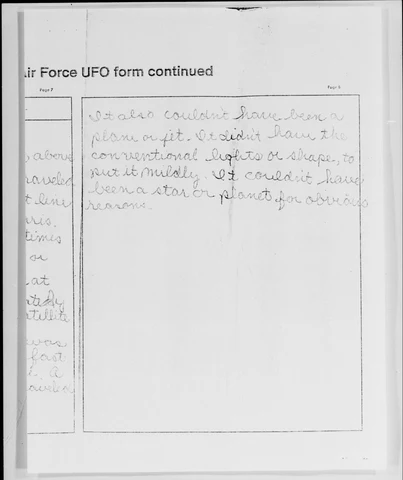 Air Force UFO form continued
Page 7
Page 8
above
traveled
t line
times
or
at
satellite
was
fast
A
It also couldn't have been a
plane or jet. It didn't have the
conventional lights or shape, to
put it mildly. It couldn't have
been a star or planet for obvious
reasons.